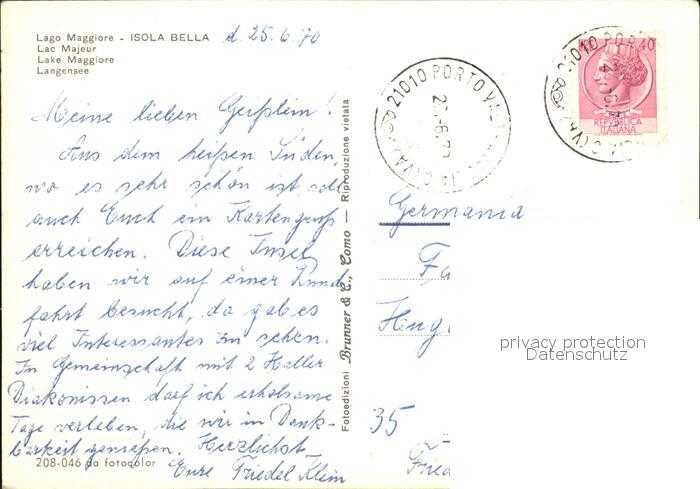 Lago Maggiore - ISOLA BELLA
Lac Majeur
Lake Maggiore
Langensee
d. 25.6.70
Meine lieben Geißlein!
Aus dem heißen Süden,
wo es sehr schön ist, soll
auch Euch ein Kartengruß
erreichen. Diese Insel
haben wir auf einer Rund
fahrt besucht, da gab es
viel Interessantes zu sehen.
In Gemeinschaft mit 2 Haller
Diakonissen darf ich erholsame
Tage verleben, die wir in Dank-
barkeit genießen. Herzlichst
Eure Friedel Klein
208-046 da fotocolor
Fotoedizioni Brunner & C., Como — Riproduzione vietata
21010 PORTO VALTRAVAGLIA (VA)
21010 POR
(VA)
40
REPVBBLICA
ITALIANA
Germania
Fa
Hug
privacy protection
Datenschutz
35
Fried